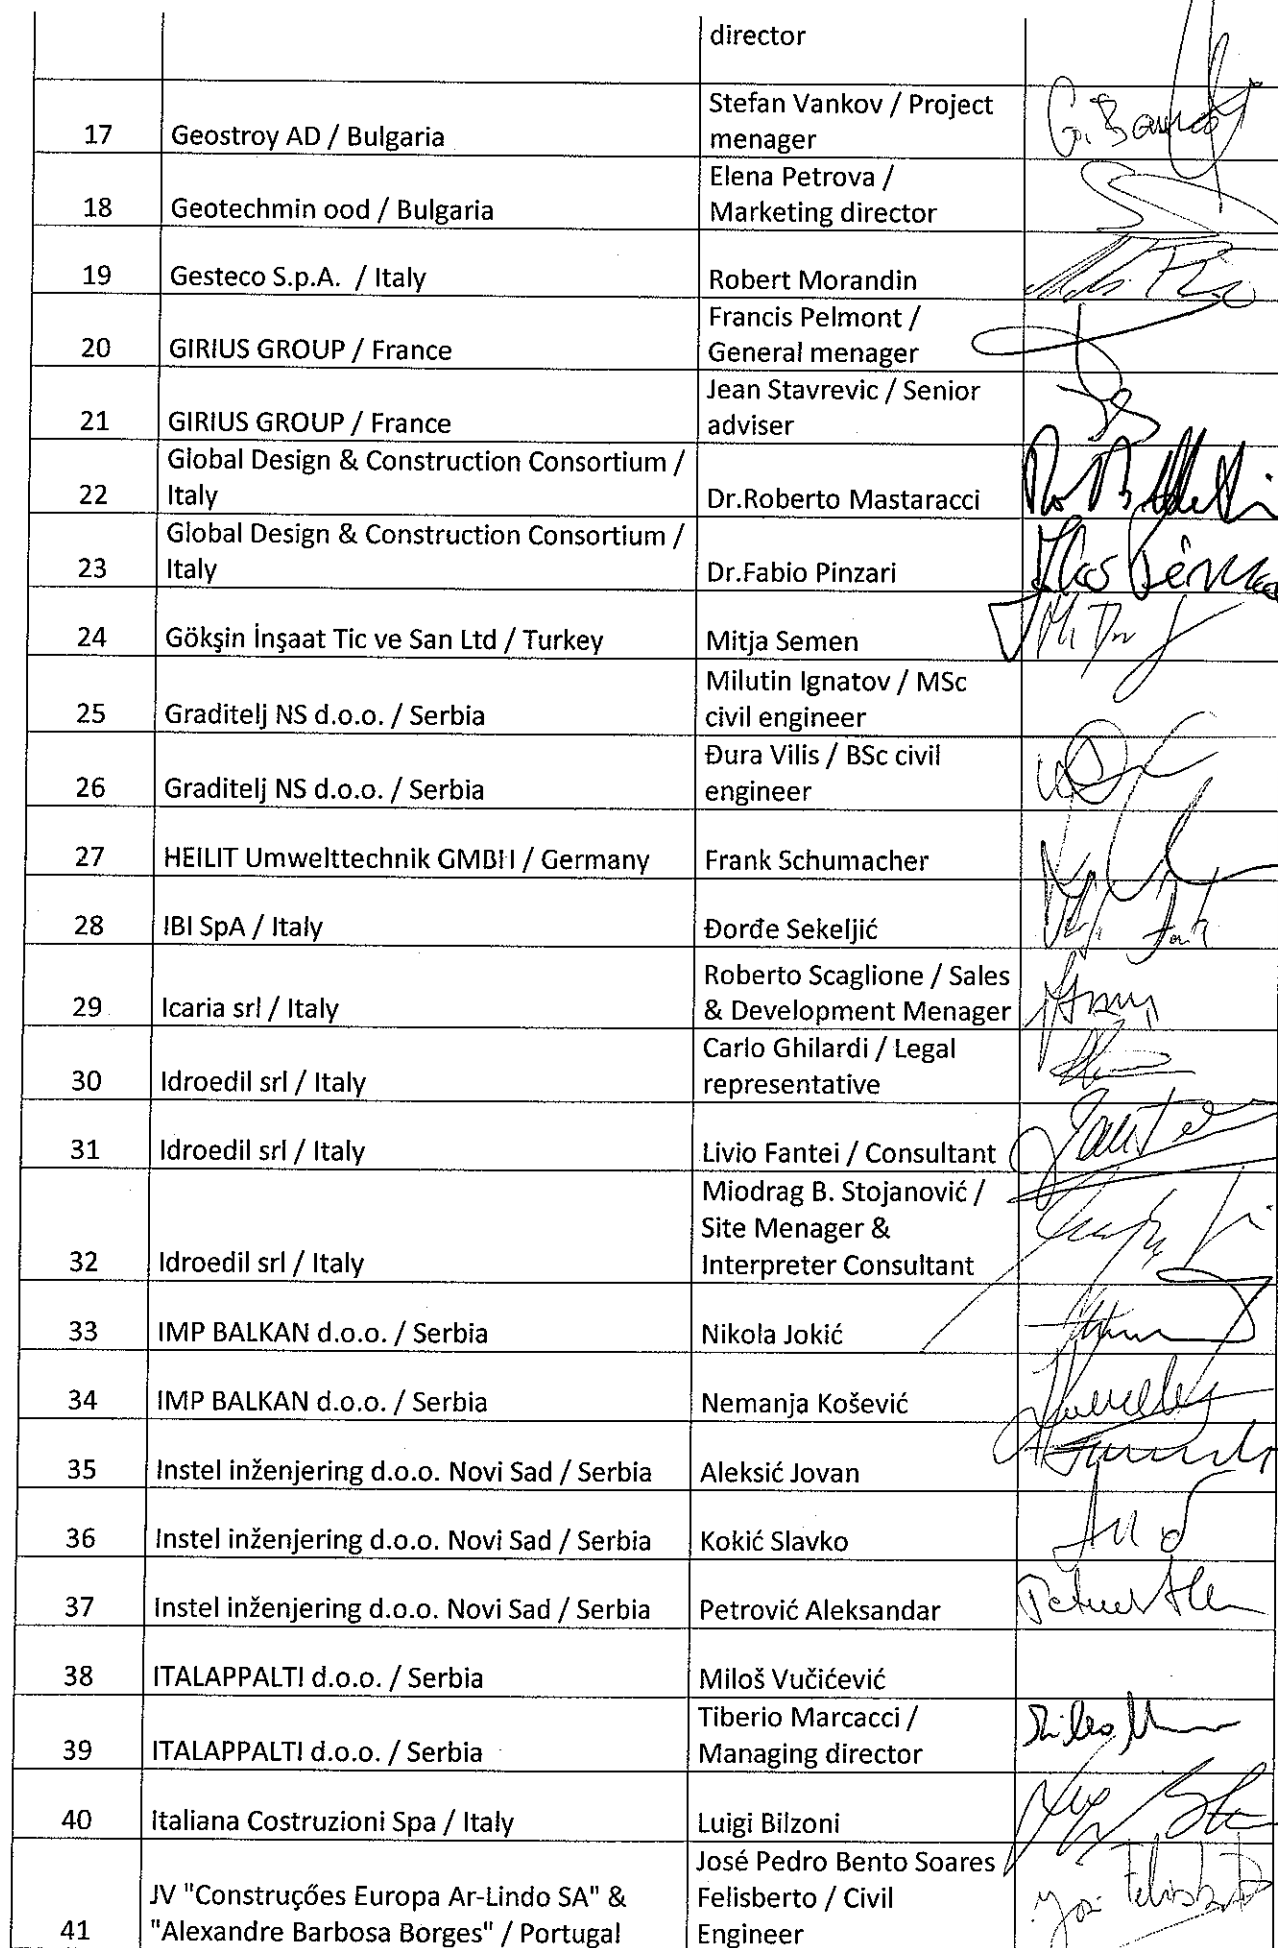 director
17 Geostroy AD / Bulgaria Stefan Vankov / Project
menager
18 Geotechmin ood / Bulgaria Elena Petrova /
Marketing director
19 Gesteco S.p.A. / Italy Robert Morandin
20 GIRIUS GROUP / France Francis Pelmont /
General menager
21 GIRIUS GROUP / France Jean Stavrevic / Senior
adviser
Global Design & Construction Consortium /
22 Italy Dr.Roberto Mastaracci
Global Design & Construction Consortium /
23 Italy Dr.Fabio Pinzari
24 Gökşin İnşaat Tic ve San Ltd / Turkey Mitja Semen
25 Graditelj NS d.o.o. / Serbia Milutin Ignatov / MSc
civil engineer
26 Graditelj NS d.o.o. / Serbia Đura Vilis / BSc civil
engineer
27 HEILIT Umwelttechnik GMBH / Germany Frank Schumacher
28 IBI SpA / Italy Đorđe Sekeljić
29 Icaria srl / Italy Roberto Scaglione / Sales
& Development Menager
30 Idroedil srl / Italy Carlo Ghilardi / Legal
representative
31 Idroedil srl / Italy Livio Fantei / Consultant
32 Idroedil srl / Italy Miodrag B. Stojanović /
Site Menager &
Interpreter Consultant
33 IMP BALKAN d.o.o. / Serbia Nikola Jokić
34 IMP BALKAN d.o.o. / Serbia Nemanja Košević
35 Instel inženjering d.o.o. Novi Sad / Serbia Aleksić Jovan
36 Instel inženjering d.o.o. Novi Sad / Serbia Kokić Slavko
37 Instel inženjering d.o.o. Novi Sad / Serbia Petrović Aleksandar
38 ITALAPPALTI d.o.o. / Serbia Miloš Vučićević
39 ITALAPPALTI d.o.o. / Serbia Tiberio Marcacci /
Managing director
40 Italiana Costruzioni Spa / Italy Luigi Bilzoni
José Pedro Bento Soares
JV "Construções Europa Ar-Lindo SA" & Felisberto / Civil
41 "Alexandre Barbosa Borges" / Portugal Engineer